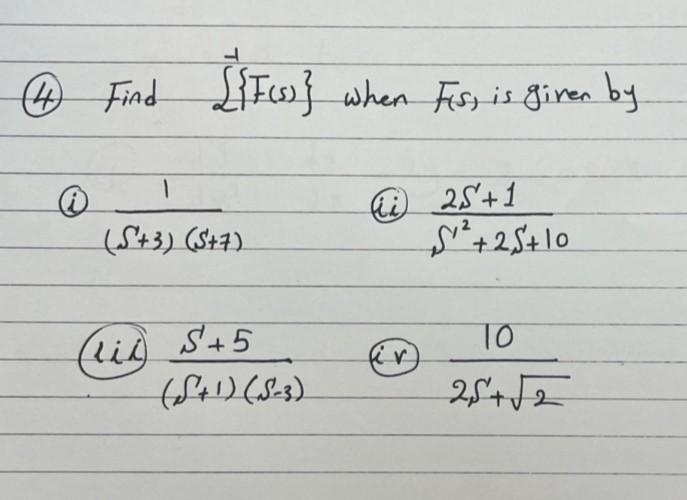 ④ Find ℒ⁻¹{F(s)} when F(s) is given by
ⓘ 1/((S+3)(S+7)) (ii) (2S+1)/(S²+2S+10)
(iii) (S+5)/((S+1)(S-3)) (iv) 10/(2S+√2)